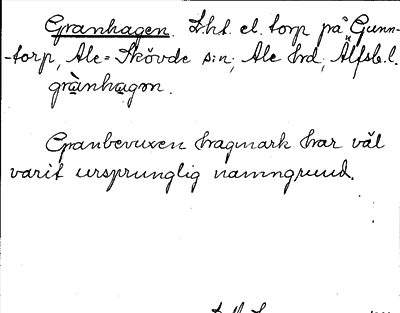 Granhagen. Lht. el. torp på Gunn-
-torp, Ale-Skövde s:n; Ale hrd, Älfsb. l.
grànhagon.
Granbevuxen hagmark har väl
varit ursprunglig namngrund.